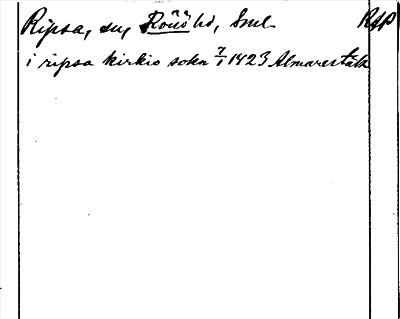 Ripsa, sn, Rönö hd, Sml. RAP
i ripsa kirkio sokn 7/1 1423 Almarestäk